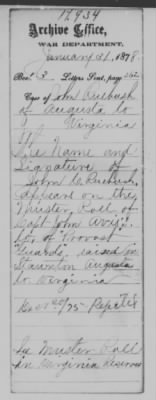 17.934
Archive Office,
WAR DEPARTMENT,
January 31, 1878.
Book 3 Letters Sent, page
Case of John
of Augusta Co
Virginia
The Name and
Signature of
John
appears on the
Muster Roll of
Capt John
Co. of Provost
Guards, raised in
Staunton Augusta
Co Virginia

La Muster Roll
in Virginia Reserves